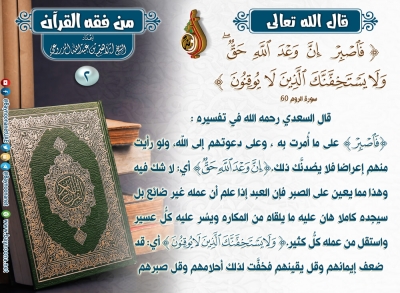 من فقه القرآن
٢
قال الله تعالى
﴿ فَٱصْبِرْ إِنَّ وَعْدَ ٱللَّهِ حَقٌّ ۖ
وَلَا يَسْتَخِفَّنَّكَ ٱلَّذِينَ لَا يُوقِنُونَ ﴾
سورة الروم 60
قال السعدي رحمه الله في تفسيره :
﴿فَٱصْبِرْ﴾ على ما أُمرت به ، وعلى دعوتهم إلى الله، ولو رأيت
منهم إعراضا فلا يصدنَّك ذلك.﴿إِنَّ وَعْدَ ٱللَّهِ حَقٌّ﴾ أي: لا شك فيه
وهذا مما يعين على الصبر فإن العبد إذا علم أن عمله غير ضائع بل
سيجده كاملا هان عليه ما يلقاه من المكاره ويسر عليه كلُّ عسير
واستقل من عمله كلَّ كثير.﴿وَلَا يَسْتَخِفَّنَّكَ ٱلَّذِينَ لَا يُوقِنُونَ﴾ أي: قد
ضعف إيمانهم وقل يقينهم فخفَّت لذلك أحلامهم وقل صبرهم